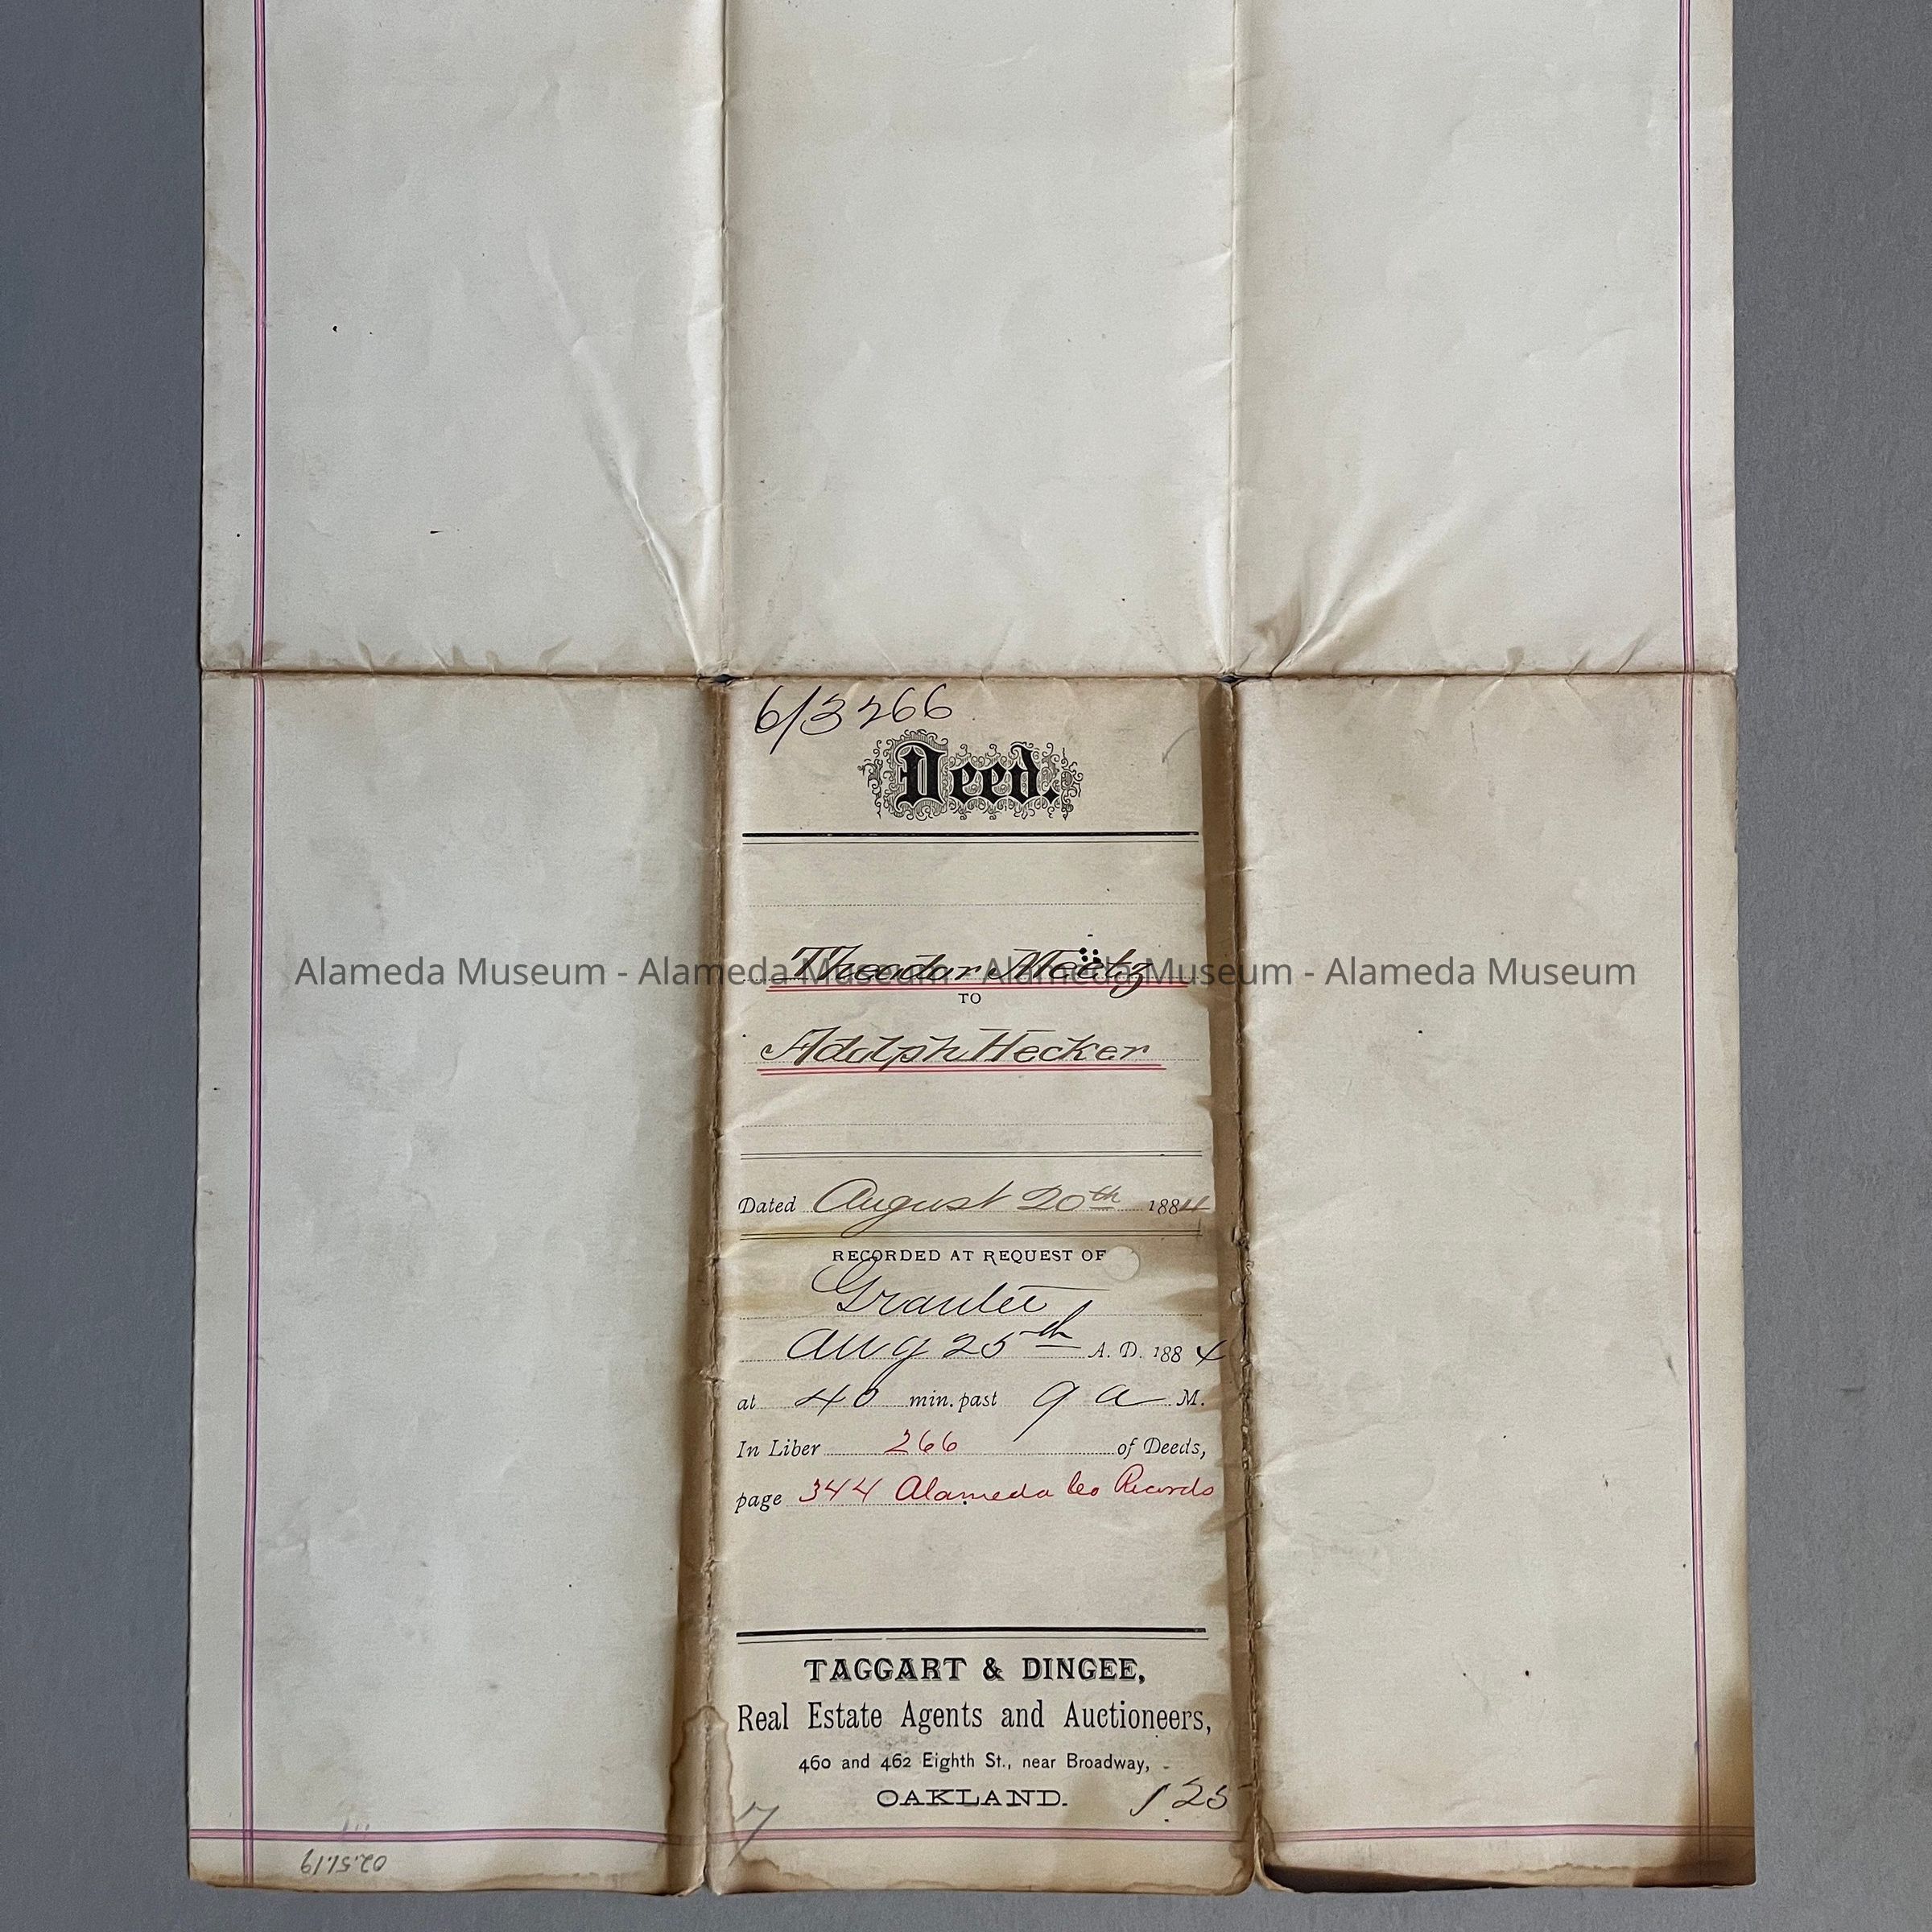 6/3266
Deed.
Theodor Meetz
Alameda Museum - Alameda Museum - Alameda Museum - Alameda Museum
TO
Adolph Hecker
Dated August 20th 1884
RECORDED AT REQUEST OF
Grantee
Aug 25th A. D. 1884
at 40 min. past 9 a M.
In Liber 266 of Deeds,
page 344 Alameda Co Records
TAGGART & DINGEE,
Real Estate Agents and Auctioneers,
460 and 462 Eighth St., near Broadway,
OAKLAND.
1.25
7
02.51.19